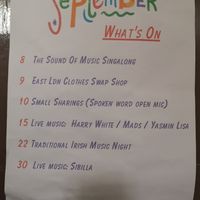 September
What's On
8 The Sound Of Music Singalong
9 East Ldn Clothes Swap Shop
10 Small Sharings (Spoken word open mic)
15 Live music: Harry White / Mads / Yasmin Lisa
22 Traditional Irish Music Night
30 Live music: Sibilla